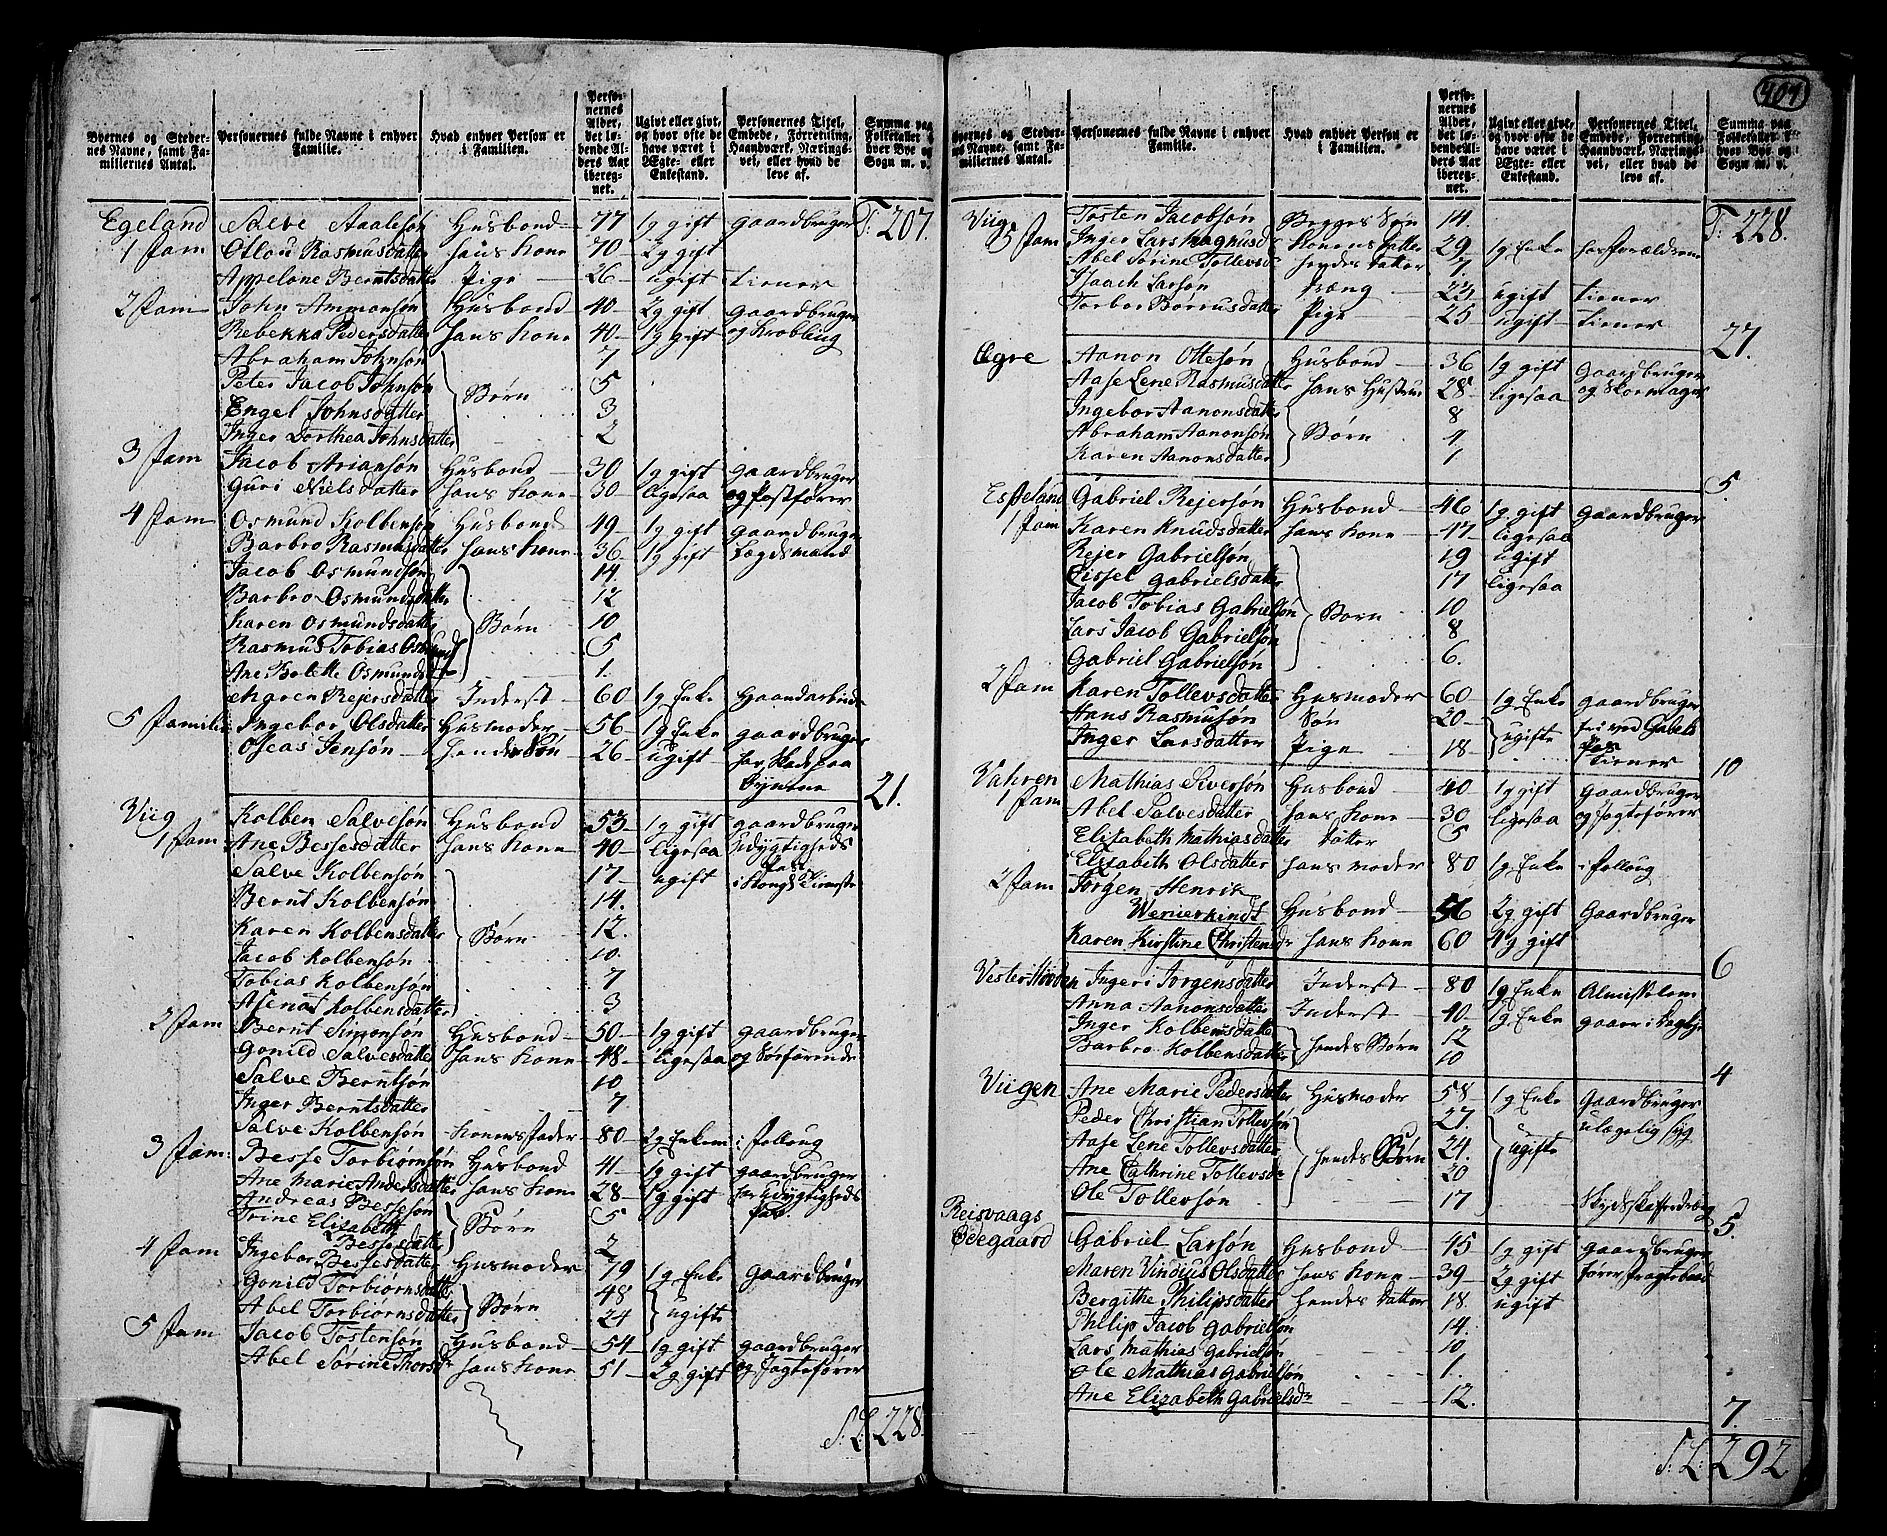 Byernes og Steder-
nes Navne, samt Fa-
miliernes Antal.
Personernes fulde Navne i enhver
Familie.
Hvad enhver Person er
i Familien.
Perso-
nernes
Alder,
det lø-
bende Al-
ders Aar
iberegt-
net.
Ugivt eller givt,
og hvor ofte de
have været i
Ægte- eller
Enkestand.
Personernes Titel,
Embede, Forretning,
Haandværk, Nærings-
vei, eller hvad de
leve af.
Summa paa
Folketallet i
hver Bye og
Sogn m. v.
T: 207.
Egeland Salve Aaalesøn Husbond 77 1g gift gaardbruger
1 Fam Otlou Rasmusdatter hans Kone 70 2g gift
Appelone Berntsdatter Pige 26 ugift tiener
2 Fam John Ammonsøn Husbond 40 2g gift gaardbruger
Rebekka Pedersdatter hans Kone 40 1g gift og Krobling
Abraham Johnsøn 7
Peter Jacob Johnsøn Børn 5
Engel Johnsdatter 3
Inger Dorthea Johnsdatter 2
3 Fam Jacob Ariansøn Husbond 30 1g gift gaardbruger
Guri Nielsdatter hans Kone 30 ligesaa og Postfører
4 Fam Osmund Kolbensøn Husbond 49 1g gift gaardbruger
Barbro Rasmusdatter hans Kone 36 1g gift Lægdsmand
Jacob Osmundsøn 14.
Barbro Osmundsdatter 12
Karen Osmundsdatter Børn 10
Rasmus Tobias Osmunds 5
Ane Bolette Osmundsd 1.
Maren Rejersdatter Inderst 60 1g Enke Haandarbeide
5 Familie Ingebor Olsdatter Husmoder 56 1g Enke gaardbruger
Oseas Jensøn hendes Søn 26 ugift har Skade paa
Øynene 21.
Viig Kolben Salvesøn Husbond 53 1g gift gaardbruger
1 Fam Ane Bessesdatter hans Kone 40 ligesaa Udygtigheds
Salve Kolbensøn 17 ugift Pas i Kongs Tieneste
Bernt Kolbensøn 14.
Karen Kolbensdatter Børn 12.
Jacob Kolbensøn 10.
Tobias Kolbensøn 7
Asenat Kolbensdatter 3
2 Fam Bernt Simonsøn Husbond 50 1g gift gaardbruger
Gonild Salvesdatter hans Kone 48 ligesaa og Søefarende
Salve Berntsøn 10
Inger Berntsdatter 7.
Salve Kolbensøn Konens Fader 80 2g Enkem i Følloug
3 Fam: Besse Torbiørnsøn Husbond 41 1g gift gaardbruger
Ane Marie Andersdatter hans Kone 28 1g gift har Udygtigheds
Andreas Bessesøn 5 Pas.
Trine Elizabeth Børn
Bessesdatter 2
4 Fam Ingebor Bessesdatter Husmoder 79 1g Enke gaardbruger
Gonild Torbiørnsdatter Børn 48 ugifte
Abel Torbiørnsdatter 24
5 Fam Jacob Tostensøn Husbond 54 1g gift gaardbruger
Abel Sørine Thorsdr hans Kone 51 2g gift og Jagtefører
S: L: 228.
407
Byernes og Steder-
nes Navne, samt Fa-
miliernes Antal.
Personernes fulde Navne i enhver
Familie.
Hvad enhver Person er
i Familien.
Perso-
nernes
Alder,
det lø-
bende Al-
ders Aar
iberegt-
net.
Ugivt eller givt,
og hvor ofte de
have været i
Ægte- eller
Enkestand.
Personernes Titel,
Embede, Forretning,
Haandværk, Nærings-
vei, eller hvad de
leve af.
Summa paa
Folketallet i
hver Bye og
Sogn m. v.
T: 228.
Viig Tosten Jacobsøn Begges Søn 14.
5 Fam Inger Lars Magnusd Konens datter 29 1g Enke hos Forældrene
Abel Sørine Tollevsd hendes datter 7.
Isaach Larsøn Dræng 23 ugift tiener
Torbor Børrusdatter Pige 25 ugift tiener
27.
Øgre Aanon Ottesøn Husbond 36 1g gift gaardbruger
Aase Lene Rasmusdatter hans Hustrue 28 ligesaa og Skoemager
Ingebor Aanonsdatter 8
Abraham Aanonsøn Børn 4
Karen Aanonsdatter 1
5.
Espeland Gabriel Rejersøn Husbond 46 1g gift gaardbruger
1 Fam Karen Knudsdatter hans Kone 47 ligesaa
Rejer Gabrielsøn 19 ugift
Sissel Gabrielsdatter 17 ligesaa
Jacob Tobias Gabrielsøn Børn 10
Lars Jacob Gabrielsøn 8
Gabriel Gabrielsøn 6.
2 Fam Karen Tollevsdatter Husmoder 60 1g Enke gaardbruger
Hans Rasmusøn Søn 20 ugifte fri ved Gabels
Inger Larsdatter Pige 18 Pas
tiener 10
Vahren Mathias Siversøn Husbond 40 1g gift gaardbruger
1 Fam Abel Salvesdatter hans Kone 30 ligesaa og Jagtefører
Elizabeth Mathiasdatter datter 5
Elizabeth Olsdatter hans moder 80 1g Enke i Følloug
2 Fam Jørgen Henrik
Wernerkindt Husbond 56 2g gift Gaardbruger
Karen Kirstine Christensdr hans Kone 60 4g gift
6
Vester Ingeri Jorgensdatter Inderst 80 1g Enke Almisselem
Anna Aanonsdatter Inderst 40 1g Enke gaaer i
Inger Kolbensdatter hendes Børn 12
Barbro Kolbensdatter 10
4
Viigen Ane Marie Pedersdatter Husmoder 58 1g Enke Gaardbruger
Peder Christian Tollevsøn 27. ulægelig syg
Aase Lene Tollevsdatter hendes Børn 24. ugifte
Ane Cathrine Tollevsdr 20
Ole Tollevsøn 17 Skydsskafferdræng
5.
Reisvaags
Ødegaard Gabriel Larsøn Husbond 45 1g gift gaardbruger
Maren Vindius Olsdatter hans Kone 39 2g gift fører Fragtebaad
Bergithe Philipsdatter hendes datter 18. ugift
Philip Jacob Gabrielsøn 14.
Lars Mathias Gabrielsøn 10.
Ole Mathias Gabrielsøn 1.
Ane Elizabeth Gabrielsdr 12.
7.
S: L: 292